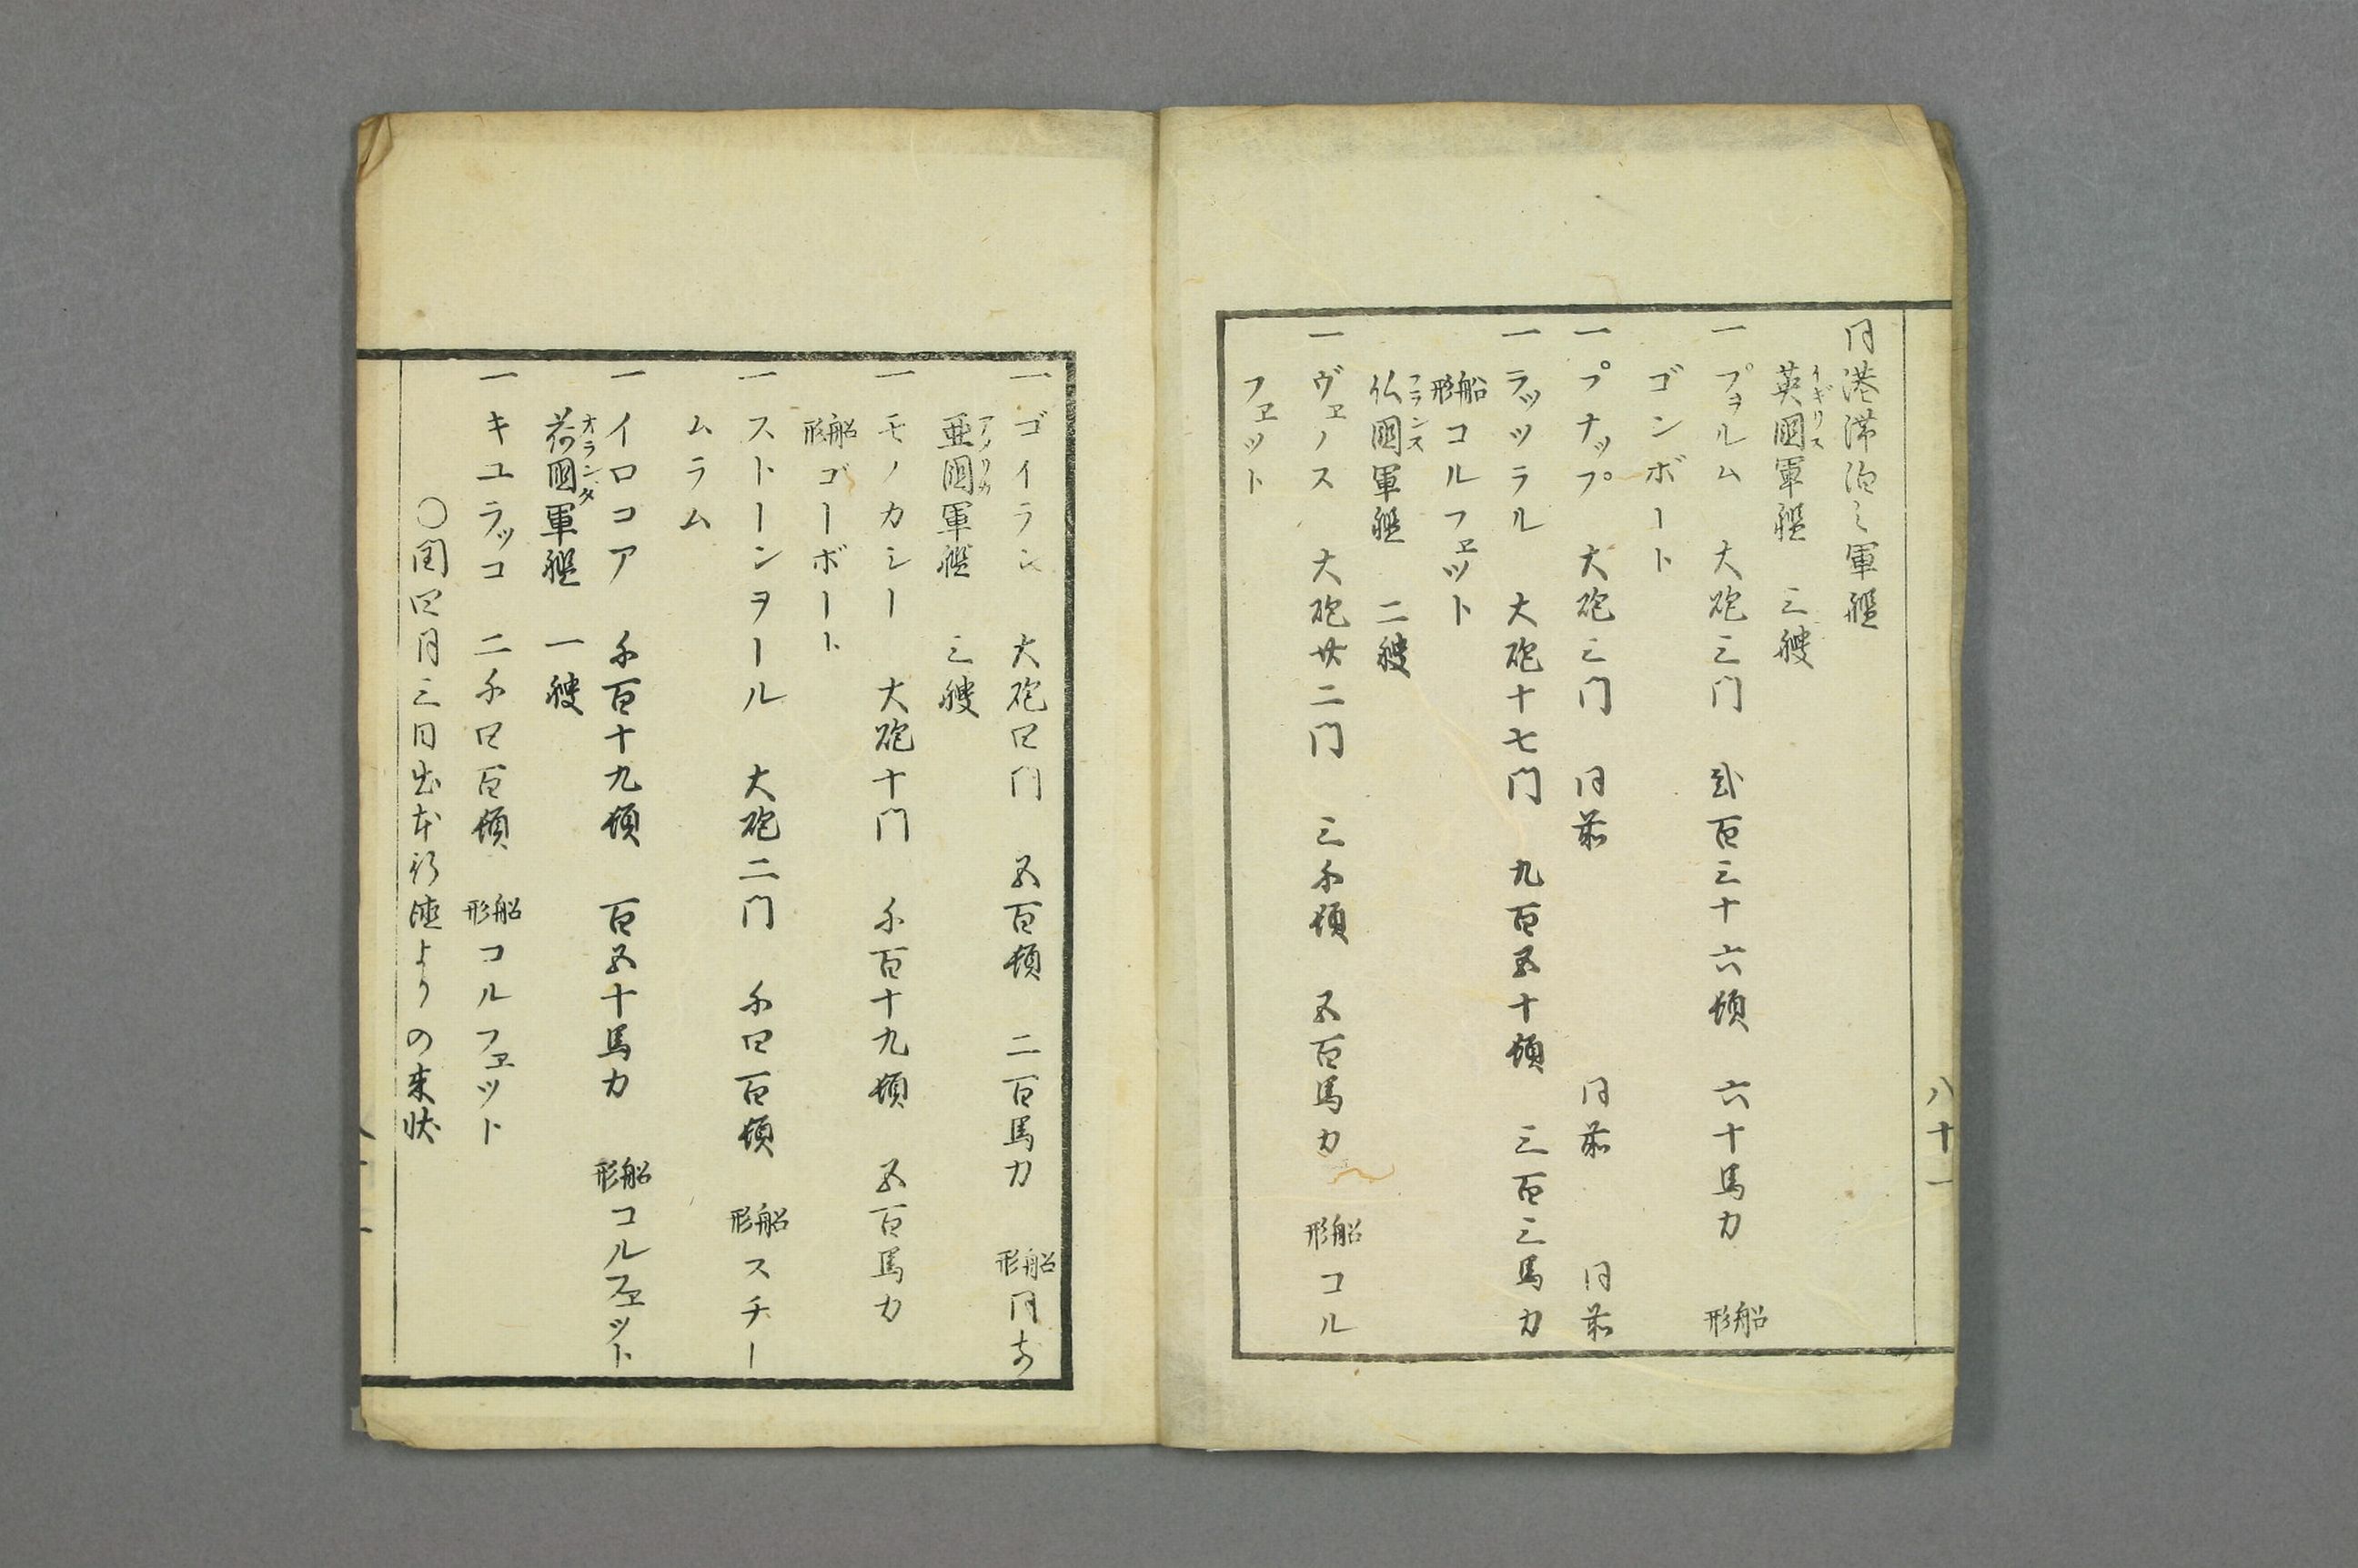 八十一
同港滞泊之軍艦
英國軍艦 三艘
イギリス
一 プヲルム 大砲三門 貳百三十六頓 六十馬力 船形
ゴンボート
一 プナップ 大砲三門 同前 同前 同前
一 ラッツラル 大砲十七門 九百五十頓 三百三馬力
船形コルフヱット
仏國軍艦 二艘
フランス
一 ヴヱノス 大砲廿二門 三千頓 五百馬力 船形コル
フヱット
一 ゴイラン 大砲四門 五百頓 二百馬力 船形同前
亜國軍艦 三艘
アメリカ
一 モノカシー 大砲十門 千百十九頓 五百馬力
船形ゴーボート
一 ストーンヲール 大砲二門 千四百頓 船形スチー
ムラム
一 イロコア 千百十九頓 百五十馬力 船形コルフヱット
荷國軍艦 一艘
オランダ
一 キユラッコ 二千四百頓 船形コルフヱット
〇閏四月三日出本行徳よりの来状